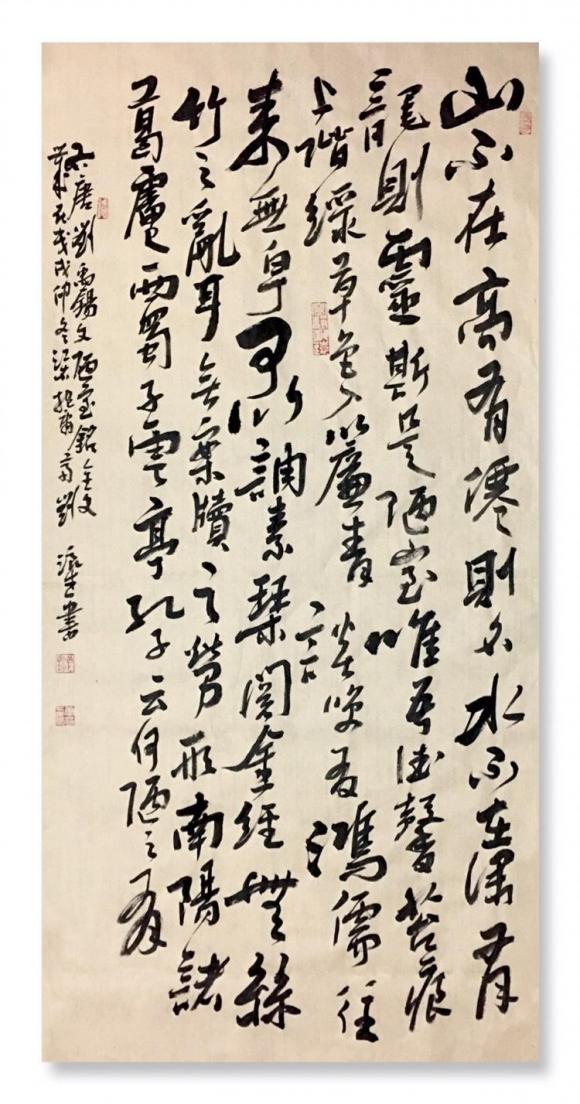 山不在高有僊則名水不在深有
龍則靈斯是陋室唯吾德馨苔痕
上階綠草色入簾青談笑有鴻儒往
来無白丁可以調素琴閱金經無絲
竹之亂耳無案牘之勞形南陽諸
葛廬西蜀子雲亭孔子云何陋之有
唐劉禹錫文陋室銘全文
戊戌仲冬 書